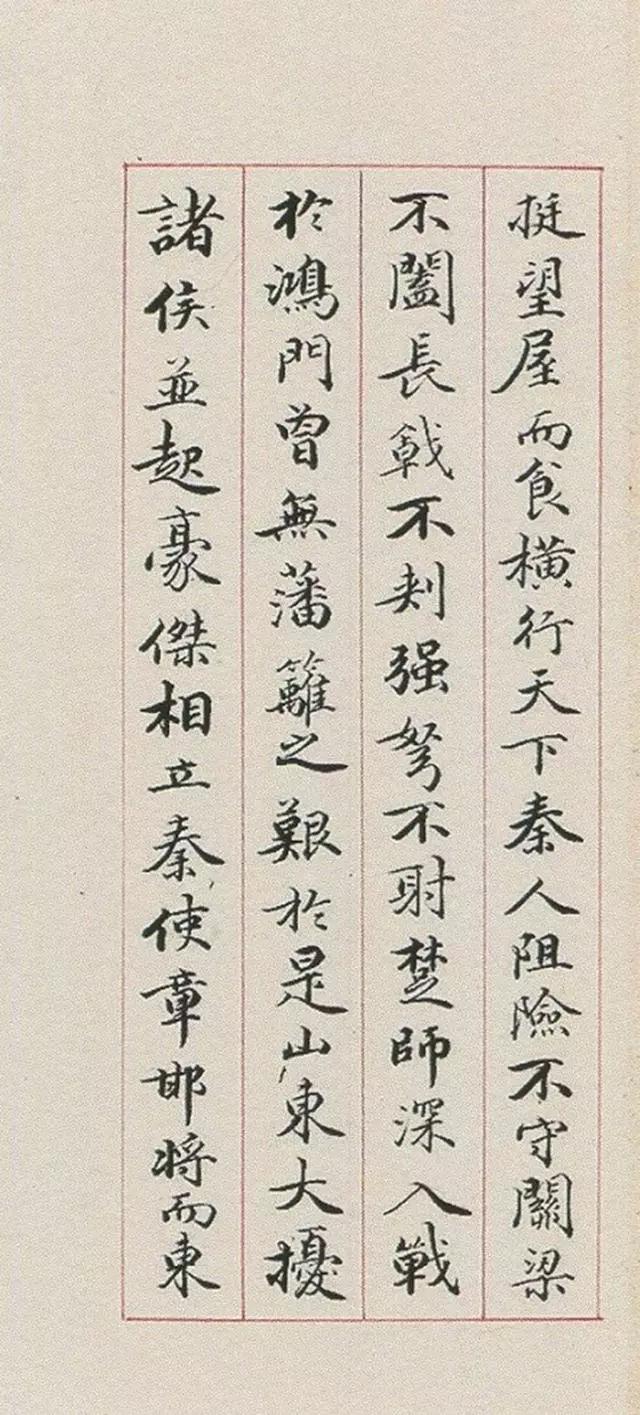 挺望屋而食橫行天下秦人阻險不守關梁
不闔長戟不刾强弩不射楚師深入戰
於鴻門曾無藩籬之艱於是山東大擾
諸侯並起豪傑相立秦使章邯將而東